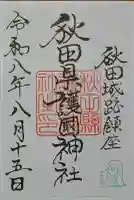 秋田城跡鎮座
秋田県護國神社
令和八年八月十五日